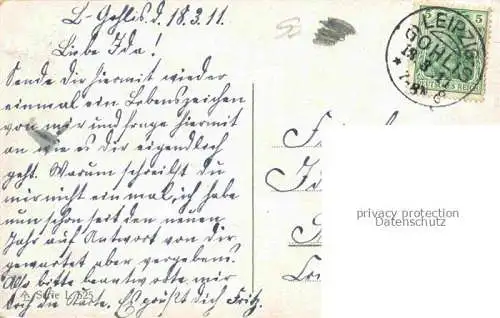 L-Gohlis d. 18.3.11.
Liebe Ida!
Sende Dir hiermit wieder
einmal ein Lebenszeichen
von mir und frage hiermit
an wie es Dir eigendlich
geht. Warum schreibst du
mir nicht einmal, ich habe
nun schon seit dem neuen
Jahr auf Antwort von dir
gewartet aber vergebens.
Also bitte beantworte mir
doch die Karte. Es grüßt dich Fritz.
Serie
LEIPZIG
GOHLIS
5
DEUTSCHES REICH
privacy protection
Datenschutz